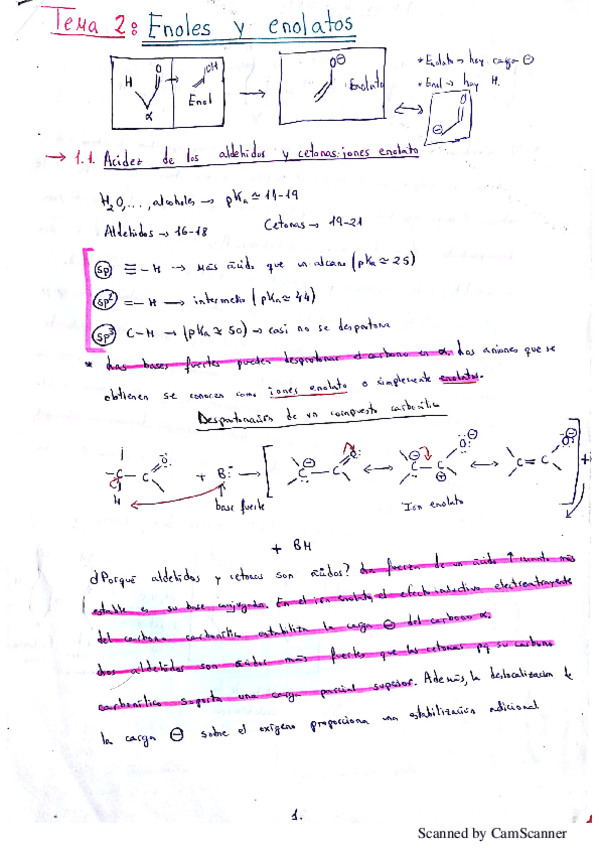 Tema 2: Enoles y enolatos
H O OH O⊖
α Enol Enolato
* Enolato → hay carga ⊖
* Enol → hay H.
⊖ O
→ 1.1. Acidez de los aldehidos y cetonas: iones enolato
H₂O, ..., alcoholes → pKa ≃ 14-19
Aldehidos → 16-18 Cetonas → 19-21
sp ≡-H → más ácido que un alcano (pKa ≃ 25)
sp² =-H → intermedio (pKa ≃ 44)
sp³ C-H → (pKa ≃ 50) → casi no se desprotona
* Las bases fuertes pueden desprotonar el carbono en α. Los aniones que se
obtienen se conocen como iones enolato o simplemente enolatos.
Desprotonación de un compuesto carbonílico
-C-C O + B:⁻ → [ C⊖-C O ↔ C⊖-C⊕ O⊖ ↔ C=C O⊖ ] +
H base fuerte Ion enolato
+ BH
¿Porqué aldehidos y cetonas son ácidos? La fuerza de un ácido ↑ cuanto más
estable es su base conjugada. En el ion enolato, el efecto inductivo electroatrayente
del carbono carbonílico estabiliza la carga ⊖ del carbono α.
Los aldehidos son ácidos más fuertes que las cetonas pq su carbono
carbonílico soporta una carga parcial superior. Además, la deslocalización de
la carga ⊖ sobre el oxígeno proporciona una estabilización adicional
1.
Scanned by CamScanner